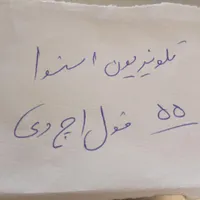 تلویزیون اسنوا
۵۵ فول اچ دی